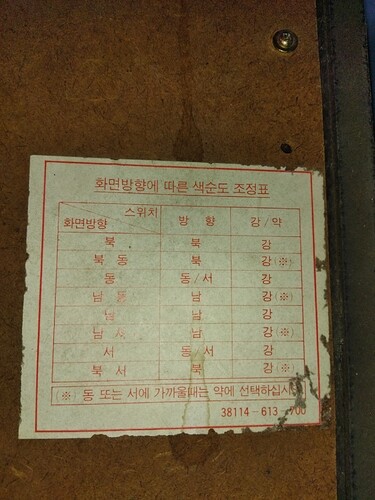 화면방향에 따른 색순도 조정표
스위치
화면방향 방 향 강 / 약
북 북 강
북 동 북 강(※)
동 동 / 서 강
남 동 남 강(※)
남 남 강
남 서 남 강(※)
서 동 서 강
북 서 북 강(※)
(※) 동 또는 서에 가까울때는 약에 선택하십시
38114-613-700